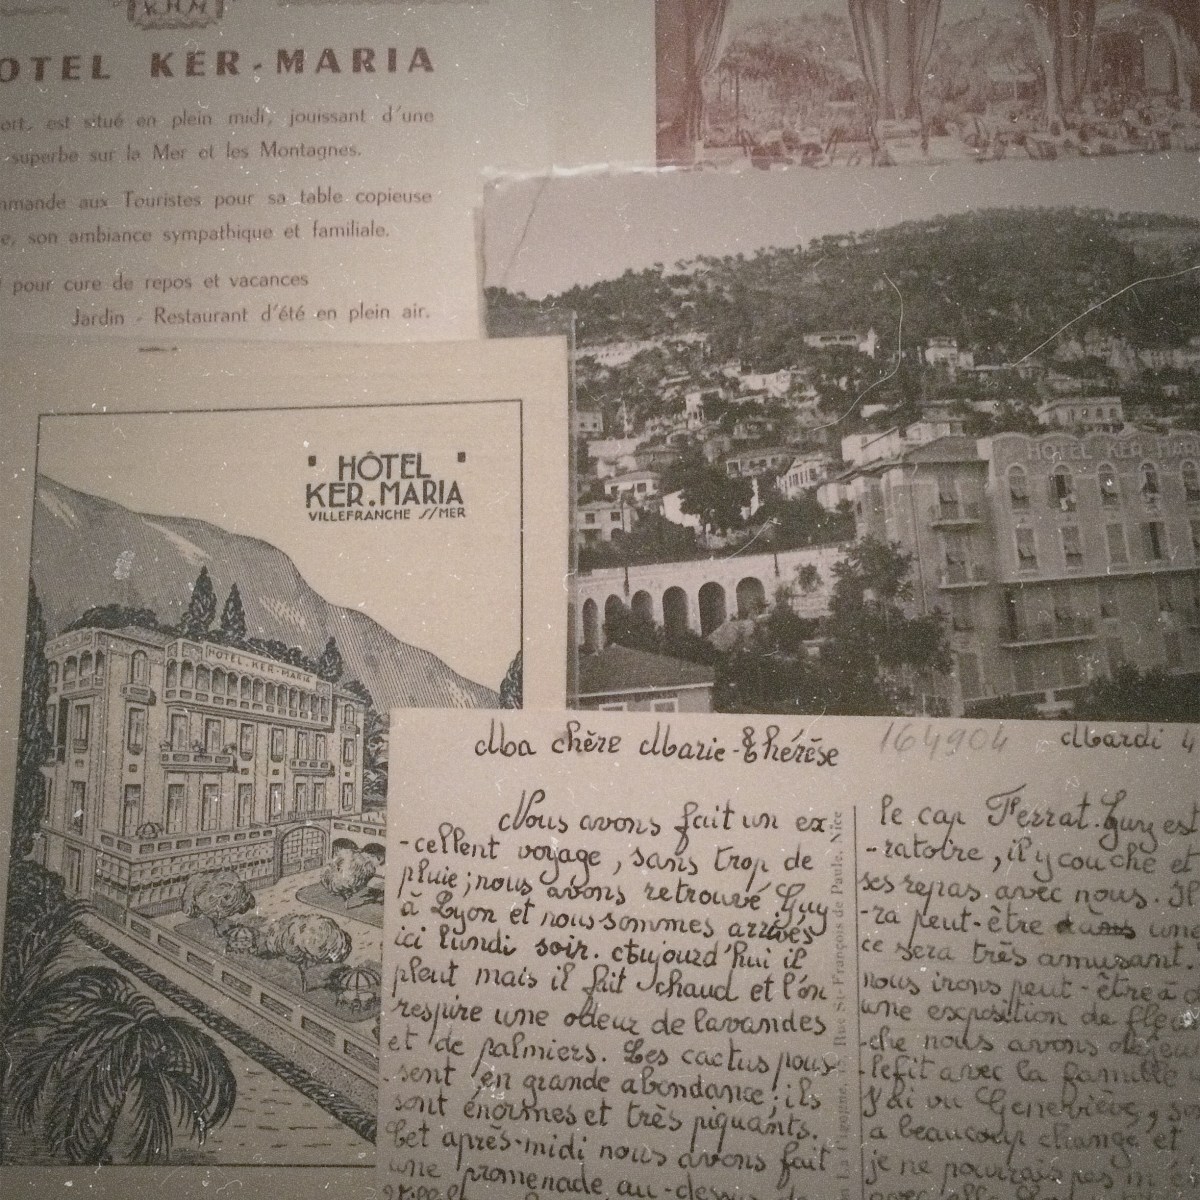 K.H.M
OTEL KER-MARIA
ort, est situé en plein midi, jouissant d'une
superbe sur la Mer et les Montagnes.
mmande aux Touristes pour sa table copieuse
e, son ambiance sympathique et familiale.
pour cure de repos et vacances
Jardin - Restaurant d'été en plein air.
HÔTEL
KER.MARIA
VILLEFRANCHE S/MER
HOTEL-KER-MARIA
HOTEL KER-MARI
Ma chère Marie-Thérèse
164904
Mardi 4
Nous avons fait un ex-
-cellent voyage, sans trop de
pluie; nous avons retrouvé Guy
à Lyon et nous sommes arrivés
ici lundi soir. Aujourd'hui il
pleut mais il fait chaud et l'on
respire une odeur de lavandes
et de palmiers. Les cactus pous-
-sent en grande abondance; ils
sont énormes et très piquants.
Cet après-midi nous avons fait
une promenade au-dessus de
Rue St-François de Paule, Nice
le cap Ferrat. Guy est
-ratoire, il y couche et
ses repas avec nous. Il
-ra peut-être dans une
ce sera très amusant.
nous irons peut-être à
une exposition de fleu
-che nous avons
-lefit avec la famille
J'ai vu Geneviève,
a beaucoup changé et
je ne pourrais pas
avec